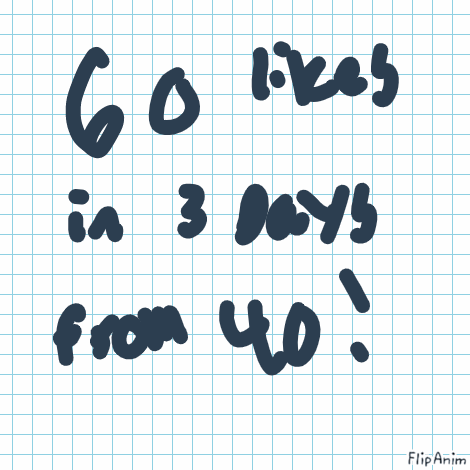 60 likes
in 3 Days
from 40!
FlipAnim